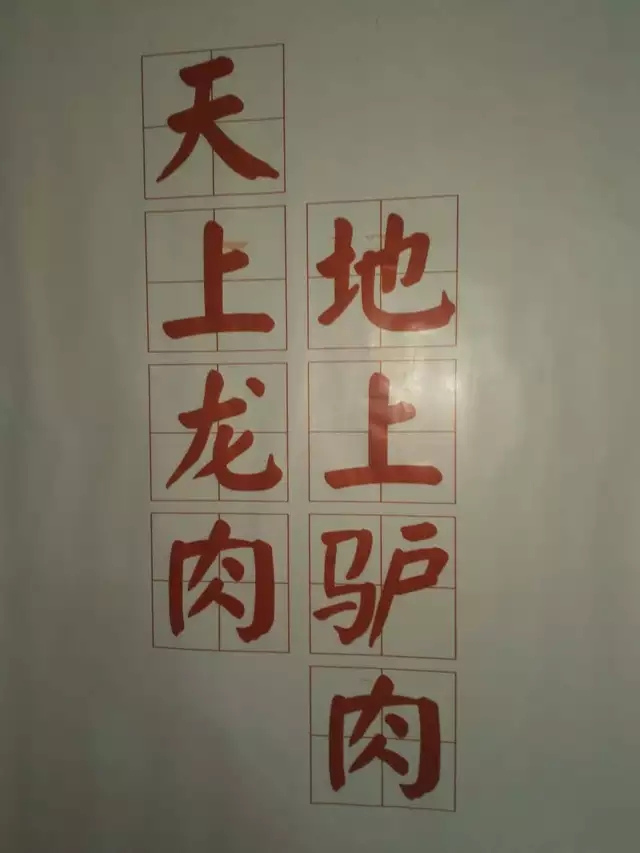 天上龙肉
地上驴肉